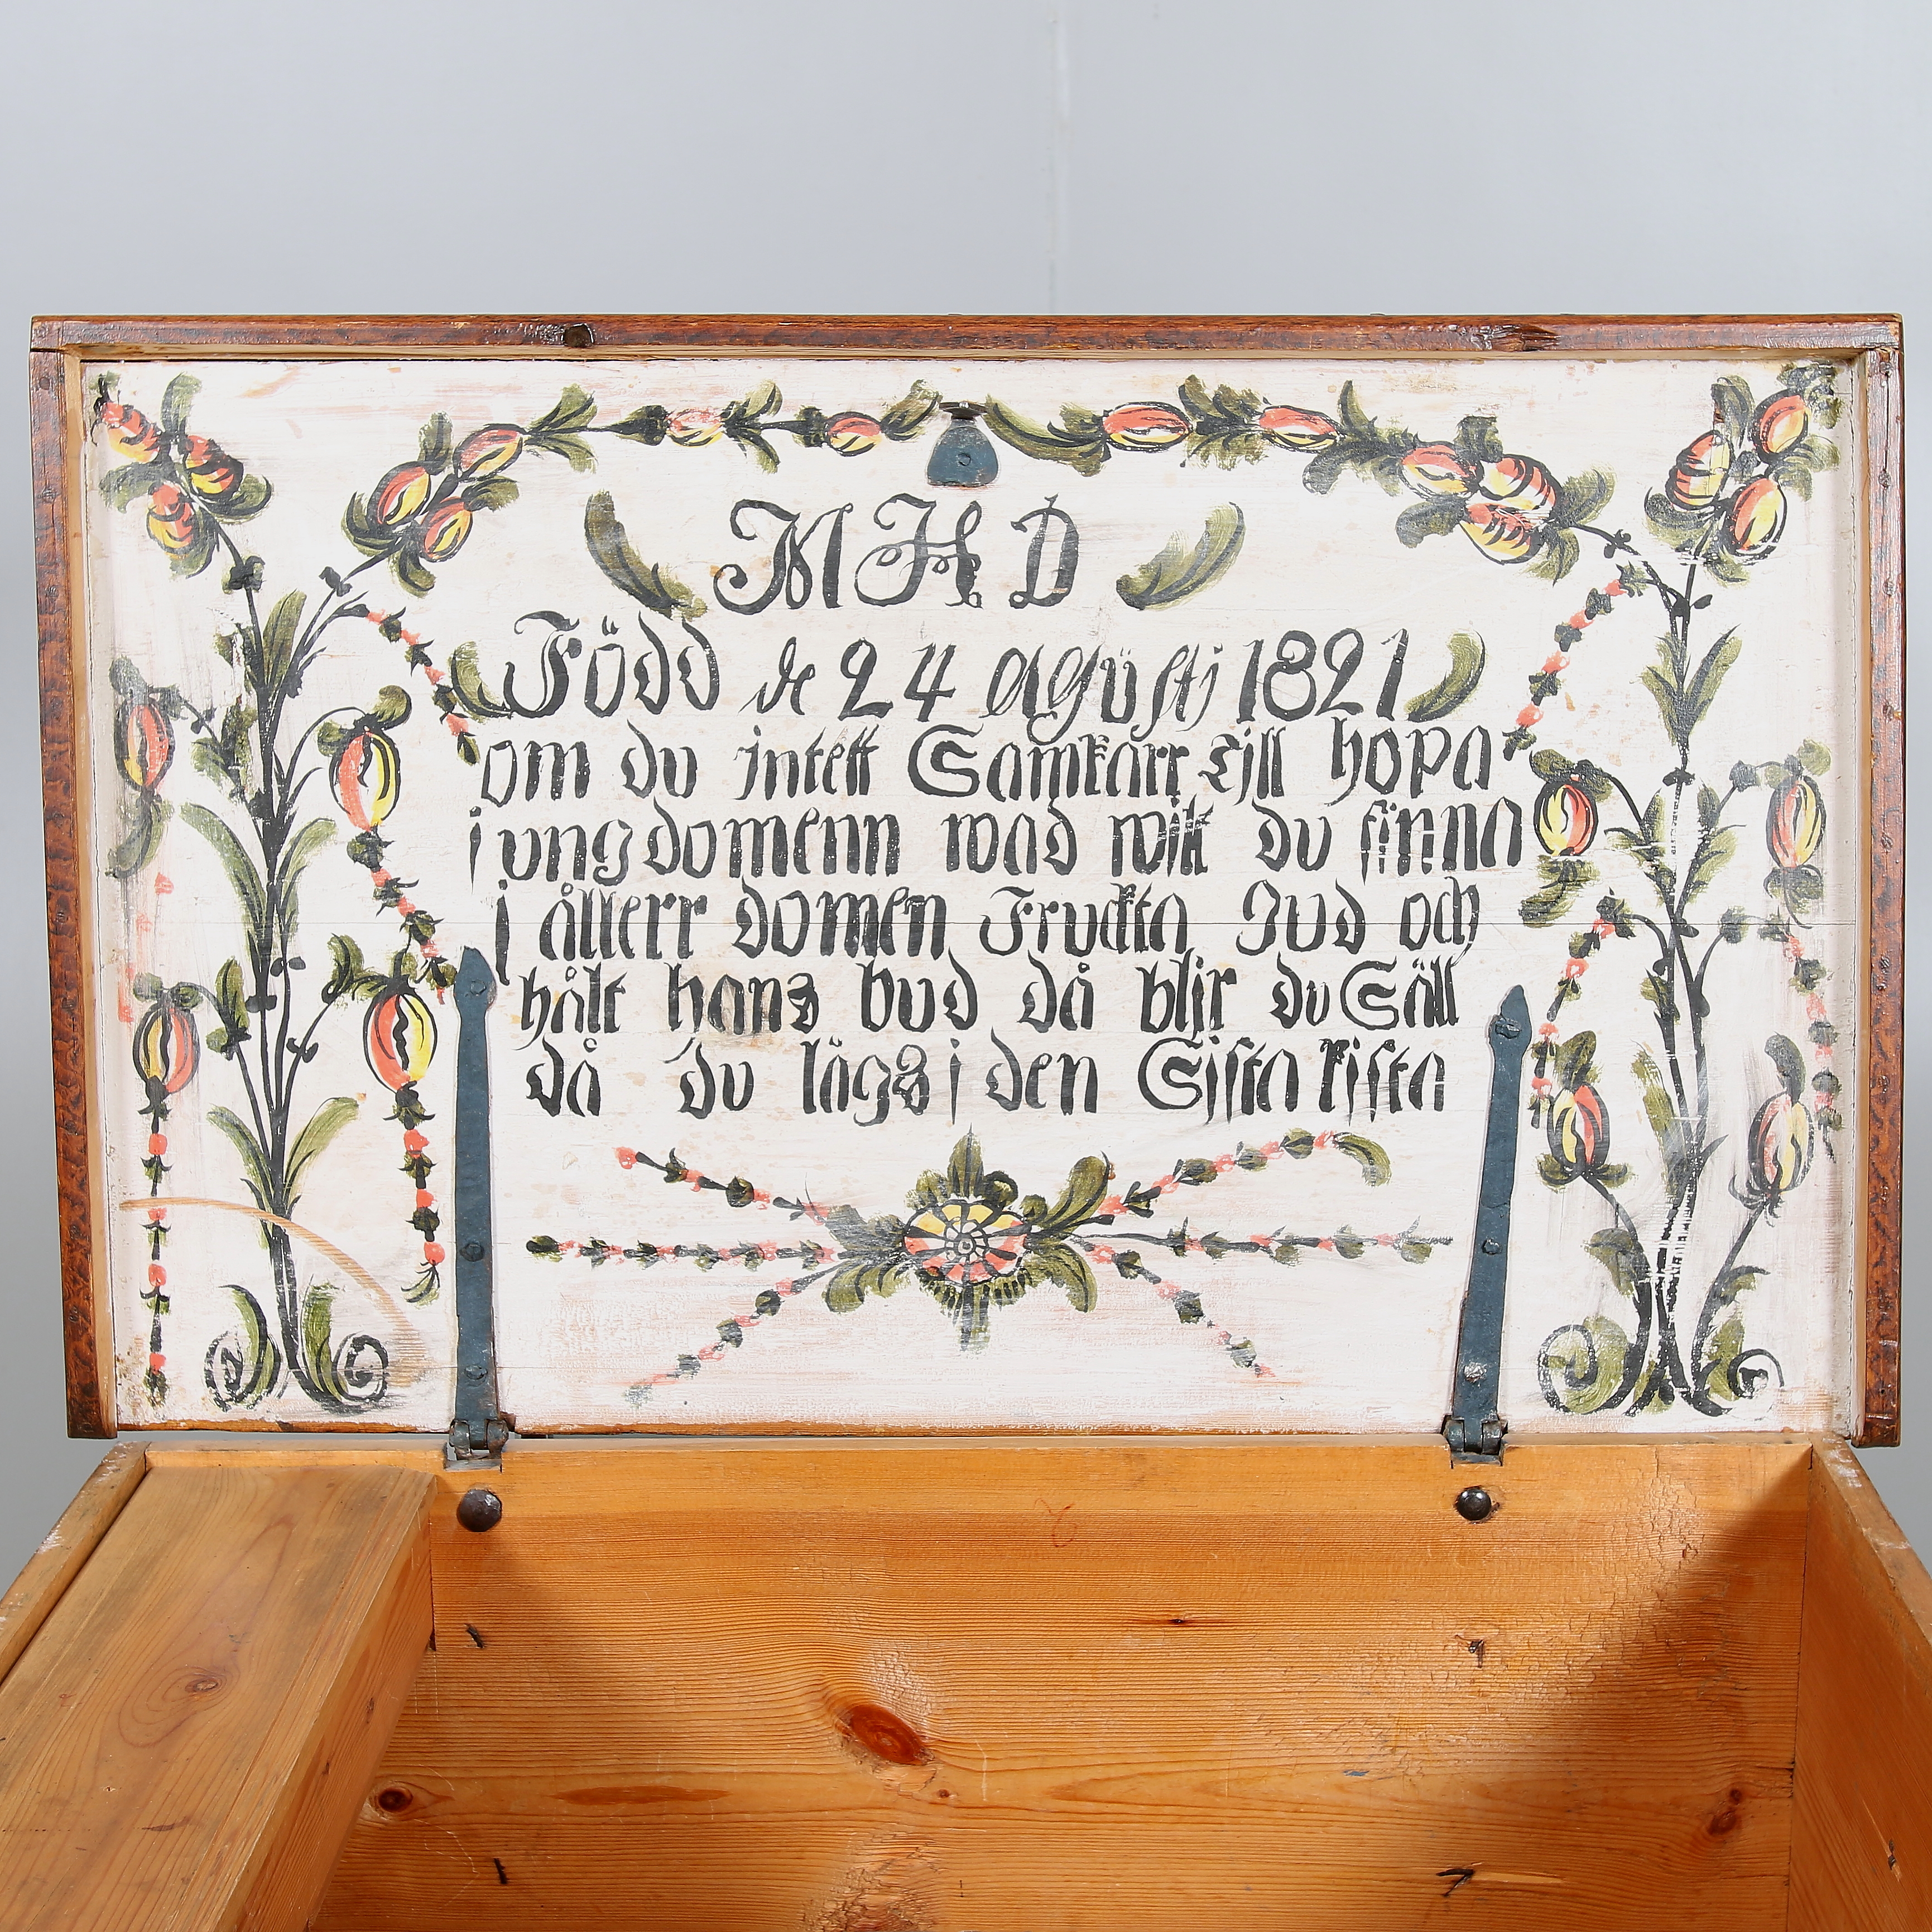 M H D
Född de 24 Agüsti 1821
om du intett Samkarr Till hopa
j ungdomenn wad witt du finna
j ållerr domen Fruckta Gud och
hålt hans bud då blir du Säll
då du lägs i den Sista kista